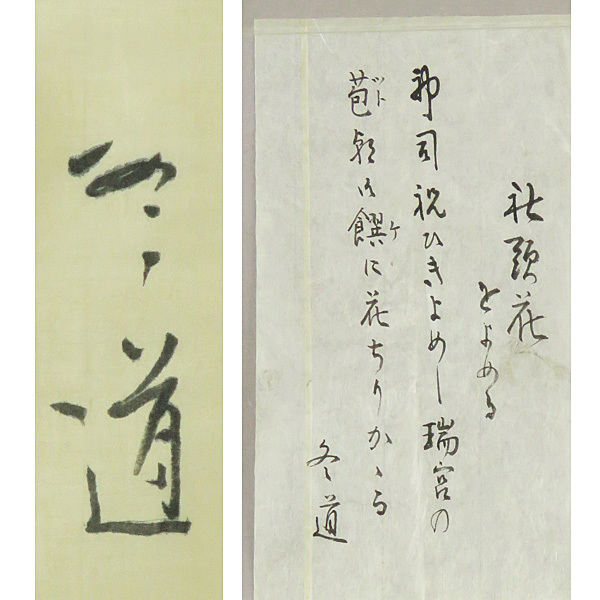 社頭花
をよめる
神司祝ひきよめし瑞宮の
ツト
苞朝御饌に花ちりかゝる
ケ
冬道
冬道